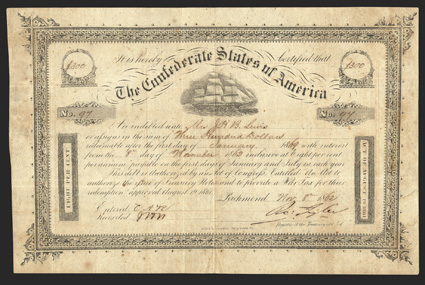 It is hereby Certified that
$300
$300
The Confederate States of America
No. 97
No. 97
Are indebted unto Mrs
or assigns in the sum of Three Hundred Dollars
redeemable after the first day of January 1869 with interest
from the 8th day of November 1862 inclusive at Eight per cent
per annum payable on the first day of January and July in each year
This debt is authorized by an Act of Congress, Entitled, An Act to
authorize the issue of Treasury Notes and to provide a War Tax for their
redemption approved August 19, 1861
EIGHT PER CENT
EIGHT PER CENT
Richmond Nov 8 1862
Entered
Recorded